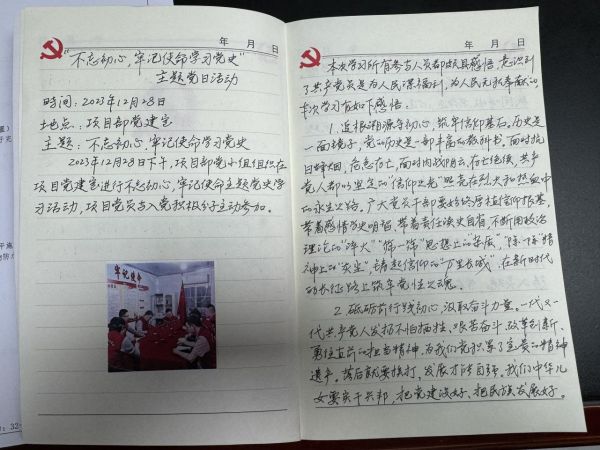 年 月 日
"不忘初心,牢记使命学习党史"
主题党日活动
时间:2023年12月28日
地点:项目部党建室
主题:不忘初心,牢记使命学习党史
2023年12月28日下午,项目部党小组组织在
项目党建室进行不忘初心,牢记使命主题党史学
习活动,项目党员与入党积极分子主动参加。
牢记使命
年 月 日
本次学习所有参与人员都颇具感悟,意识到
了共产党员是为人民谋福利,为人民无私奉献的,
本次学习有如下感悟:
1.追根溯源寻初心,筑牢信仰基石。历史是
一面镜子,党的历史是一部丰富的教科书。面对抗
日烽烟,危急存亡,面对内战明击,存亡绝续,共产
党人都以坚定的"信仰之光"照亮在烈火和热血中
的永生之路。广大党员干部要始终厚植信仰根基,
带着感情学史明智,带着责任读史自省,不断用政治
理论的"火"
"筛一筛"思想上的杂质,"除一除"精
神上的"灰尘",铸起信仰的"万里长城",在新时代
的长征路上筑牢党性之魂。
2.砥砺前行践初心,汲取奋斗力量。一代又一
代共产党人发扬不怕牺牲、艰苦奋斗、改革创新、
勇往直前的担当精神,为我们党积累了宝贵的精神
遗产。落后就要挨打,发展才能自强。我们中华儿
女要实干兴邦,把党建设好、把民族发展好。